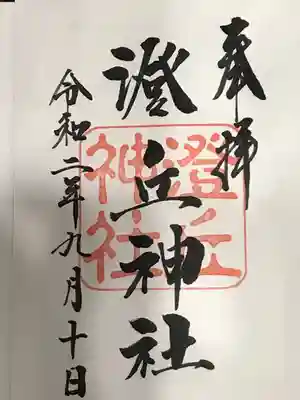 奉拝
澄丘神社
令和二年九月十日
澄丘神社